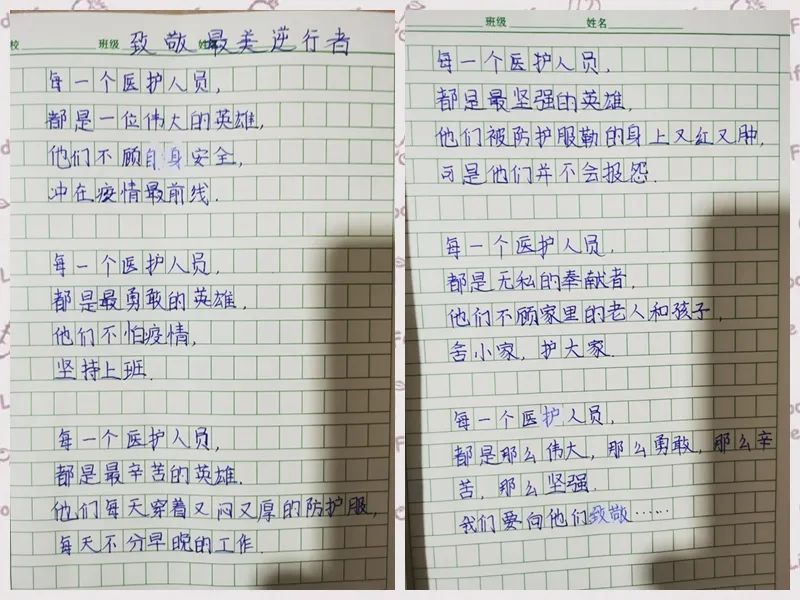 校 班级 姓名
致敬最美逆行者
每一个医护人员,
都是一位伟大的英雄,
他们不顾自身安全,
冲在疫情最前线.
每一个医护人员,
都是最勇敢的英雄,
他们不怕疫情,
坚持上班.
每一个医护人员,
都是最辛苦的英雄.
他们每天穿着又闷又厚的防护服,
每天不分早晚的工作.
班级 姓名
每一个医护人员,
都是最坚强的英雄,
他们被防护服勒的身上又红又肿,
可是他们并不会报怨.
每一个医护人员,
都是无私的奉献者,
他们不顾家里的老人和孩子,
舍小家,护大家.
每一个医护人员,
都是那么伟大,那么勇敢,那么辛
苦,那么坚强.
我们要向他们致敬……